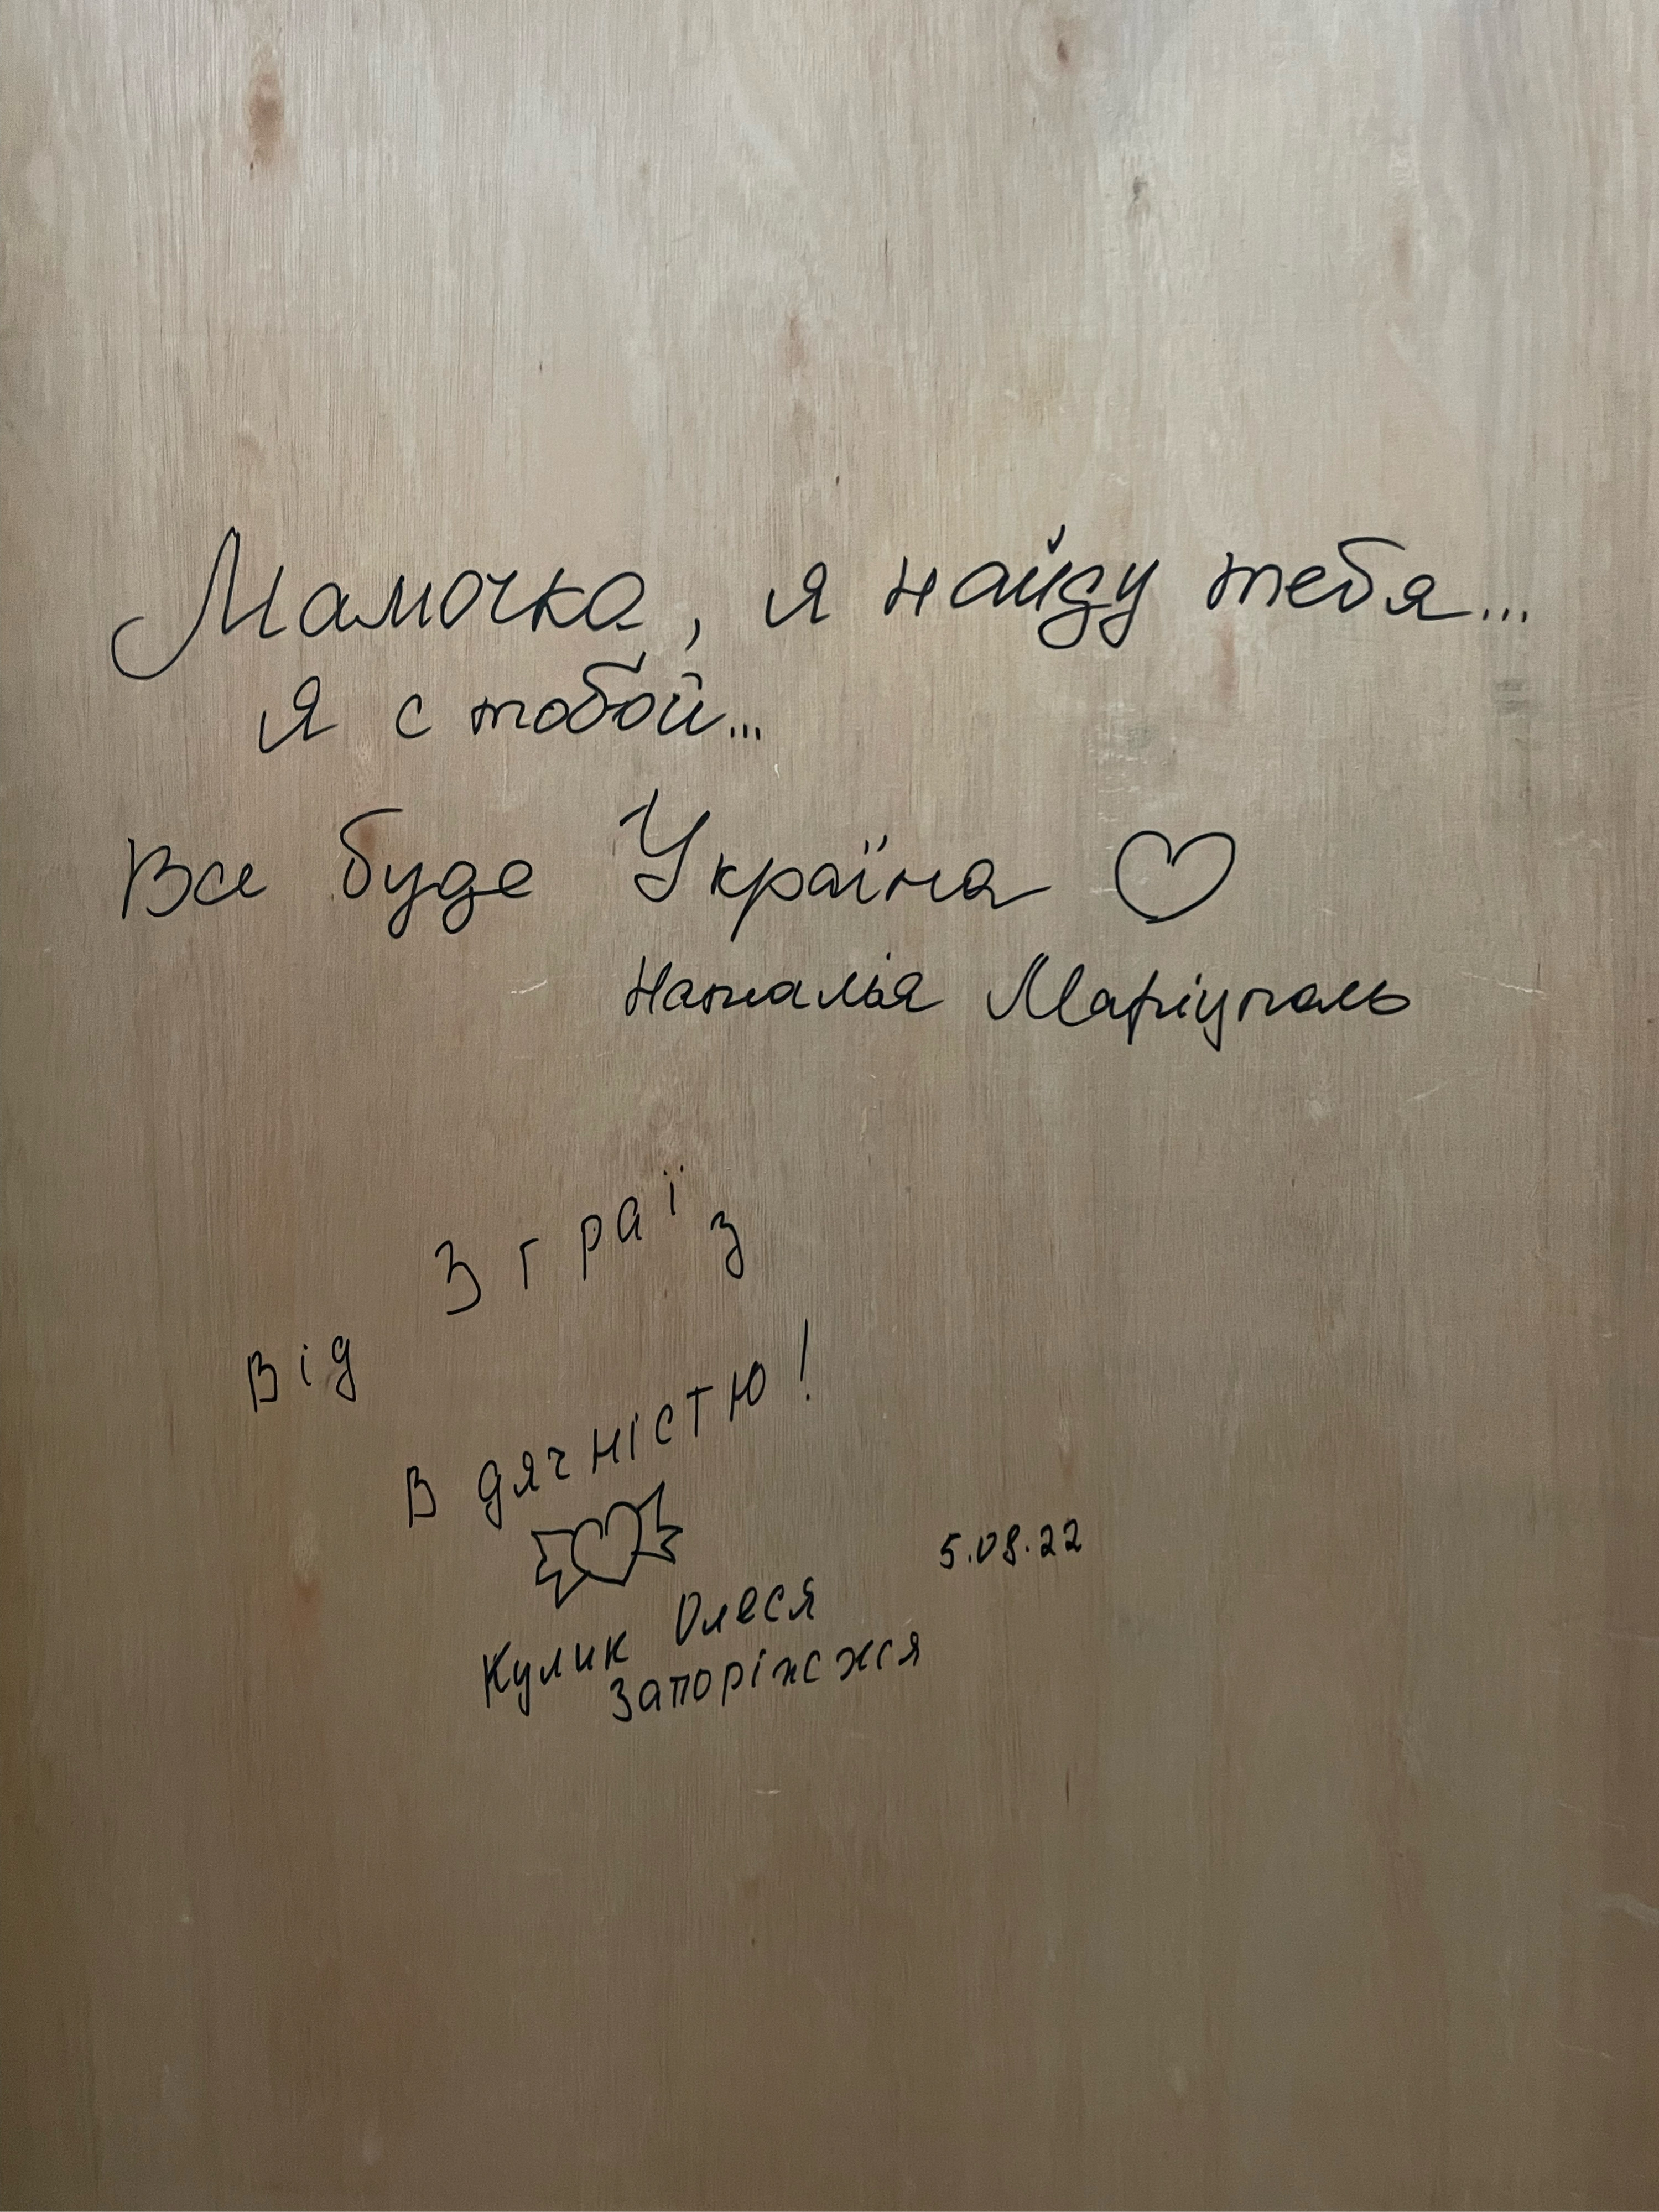 Мамочка, я найду тебя...
я с тобой...
Все буде Україна
Наталья Маріуполь
Від Зграї з
Вдячністю!
5.08.22
Кулик Олеся
Запоріжжя